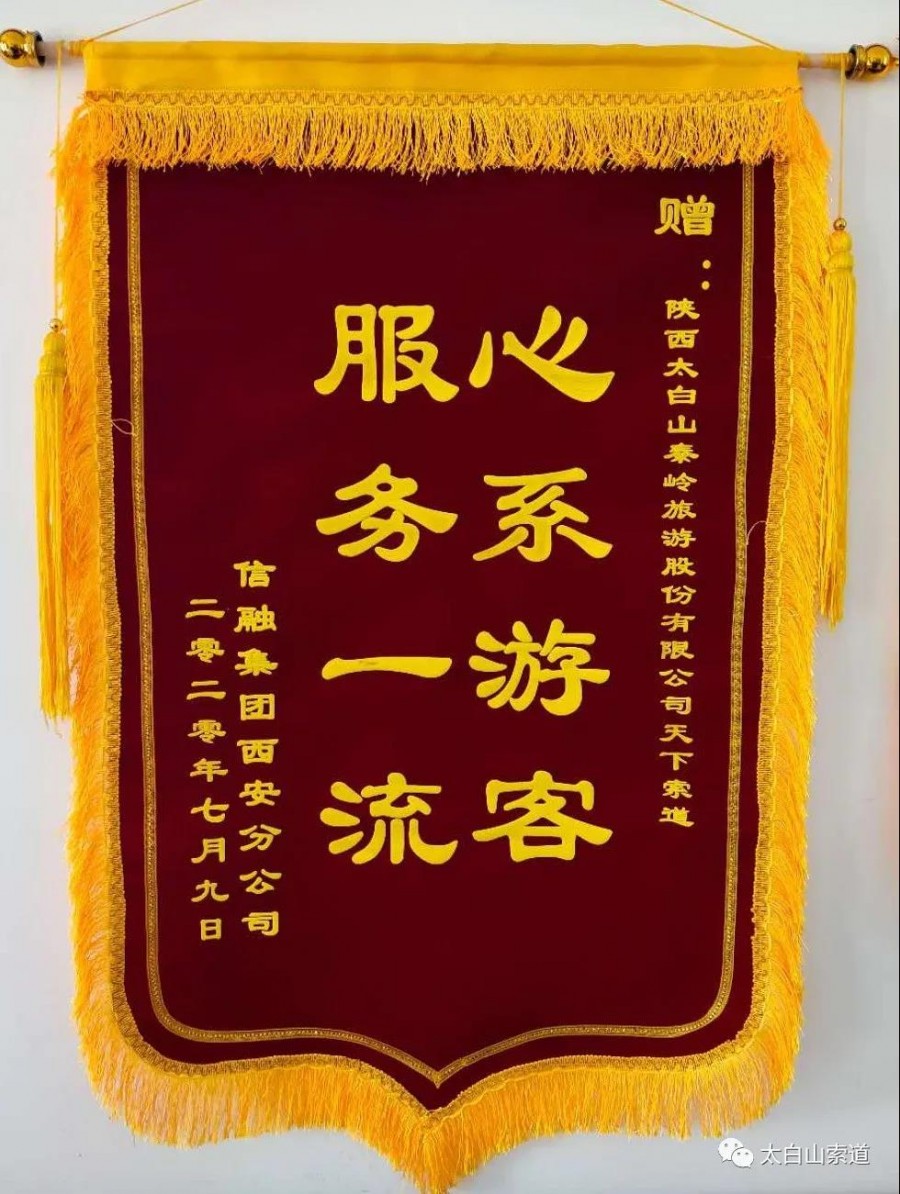 赠：
陕西太白山秦岭旅游股份有限公司天下索道
心系游客
服务一流
信融集团西安分公司
二零二零年七月九日
太白山索道